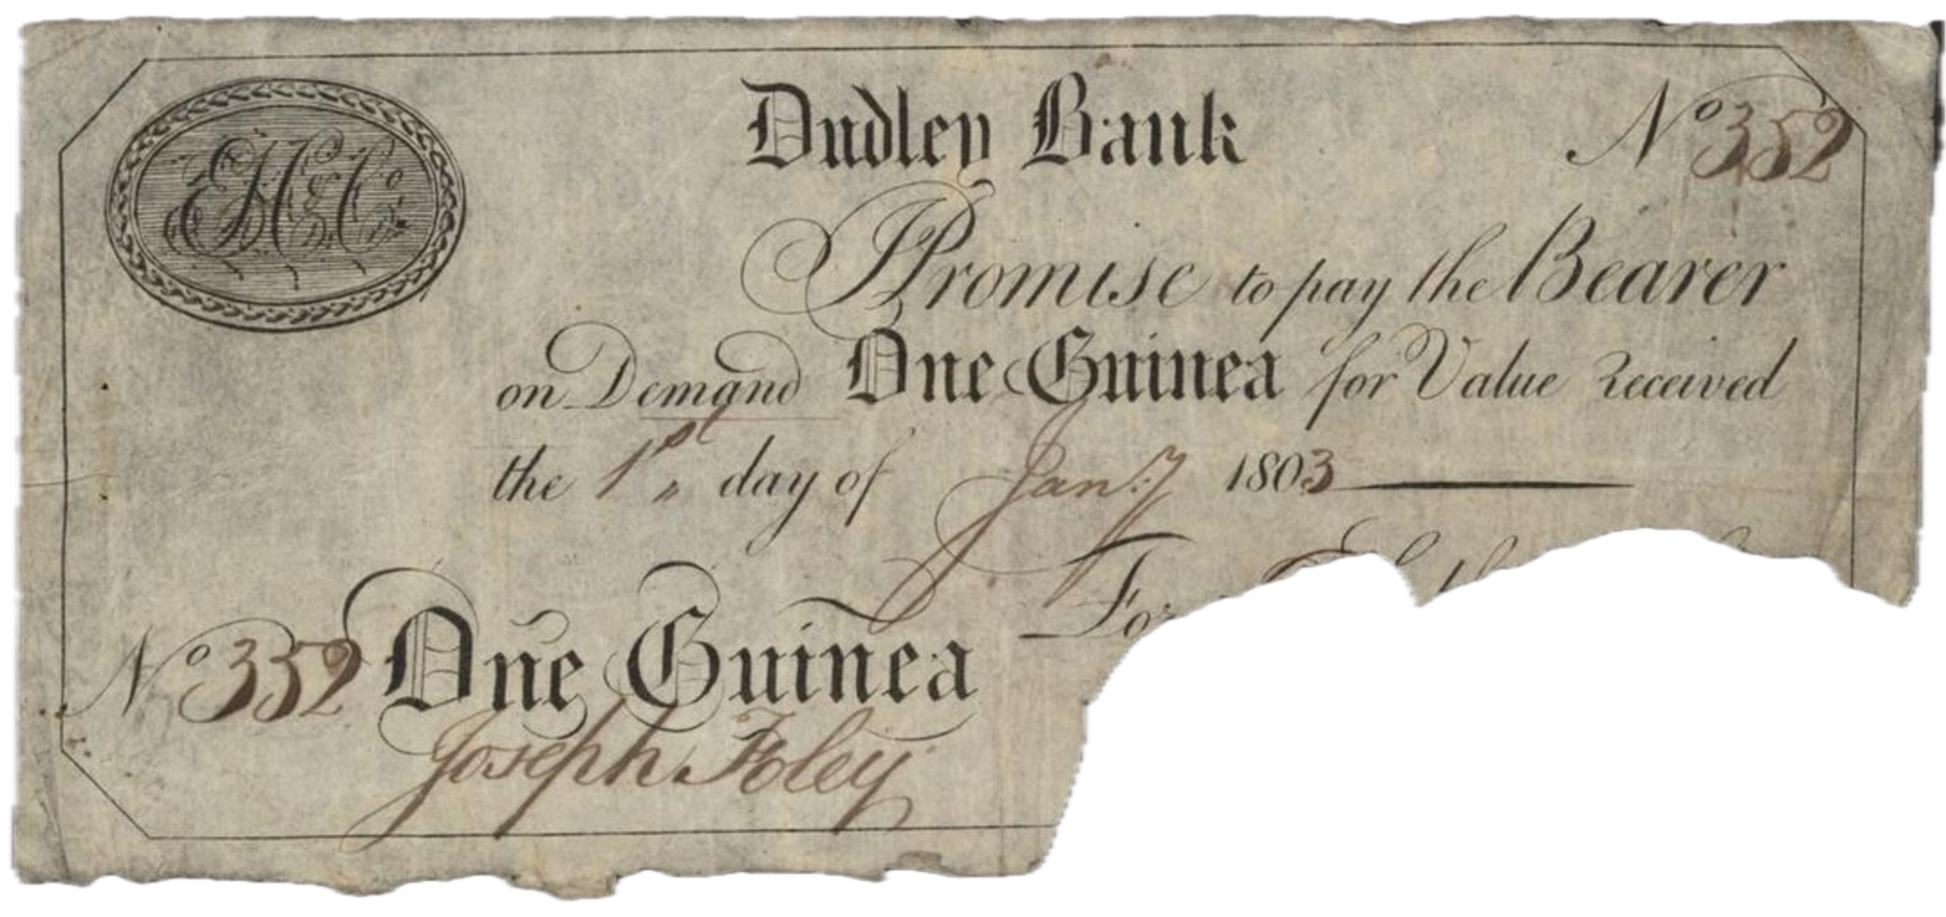 EH&Co
Dudley Bank
No 352
I Promise to pay the Bearer
on Demand One Guinea for Value received
the 1st day of Jany 1803
For
No 352 One Guinea
Joseph Foley